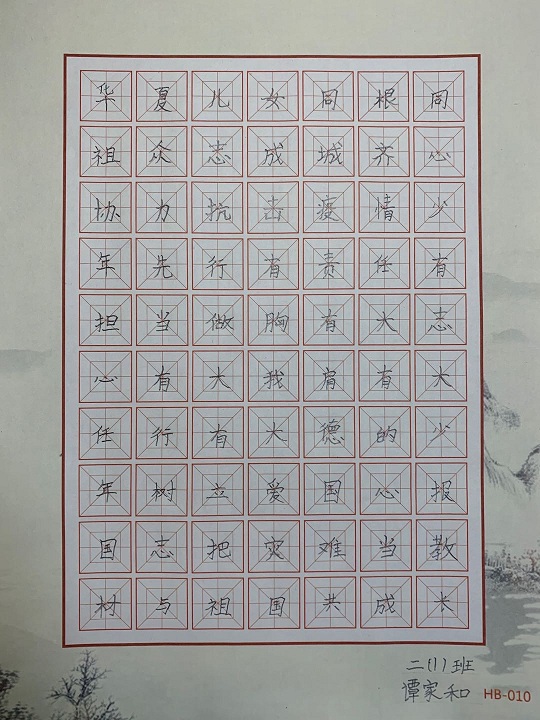 华夏儿女同根同
祖众志成城齐心
协力抗击疫情少
年先行有责任有
担当做胸有大志
心有大我肩有大
任行有大德的少
年树立爱国心报
国志把灾难当教
材与祖国共成长
二(1)班
谭家和 HB-010